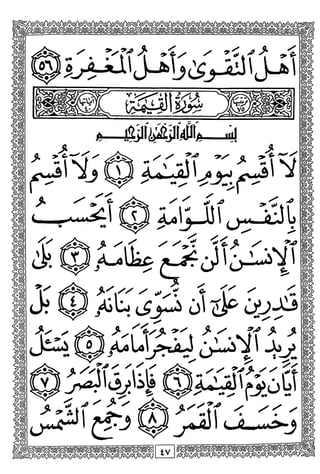 أَهْلُ ٱلتَّقْوَىٰ وَأَهْلُ ٱلْمَغْفِرَةِ ٥٦
سُورَةُ ٱلْقِيَٰمَةِ
بِسْمِ ٱللَّهِ ٱلرَّحْمَٰنِ ٱلرَّحِيمِ
لَآ أُقْسِمُ بِيَوْمِ ٱلْقِيَٰمَةِ ١ وَلَآ أُقْسِمُ
بِٱلنَّفْسِ ٱللَّوَّامَةِ ٢ أَيَحْسَبُ
ٱلْإِنسَٰنُ أَلَّن نَّجْمَعَ عِظَامَهُۥ ٣ بَلَىٰ
قَٰدِرِينَ عَلَىٰٓ أَن نُّسَوِّىَ بَنَانَهُۥ ٤ بَلْ
يُرِيدُ ٱلْإِنسَٰنُ لِيَفْجُرَ أَمَامَهُۥ ٥ يَسْـَٔلُ
أَيَّانَ يَوْمُ ٱلْقِيَٰمَةِ ٦ فَإِذَا بَرِقَ ٱلْبَصَرُ ٧
وَخَسَفَ ٱلْقَمَرُ ٨ وَجُمِعَ ٱلشَّمْسُ
٤٧